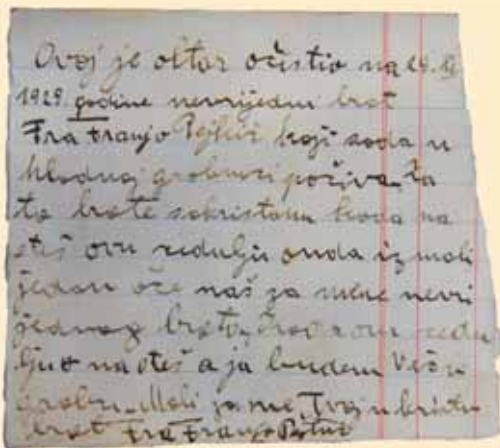 Ovaj je oltar očistio na
1929. godine nevrijedni brat
Fra Franjo koji sada u
hladnoj grobnici počiva. Za
to brate sakristanu kada na
ovu cedulju onda izmoli
jedan oče naš za mene nevri
jednog brata, ovu cedu
lju nađeš a ja budem već u
grobu. Moli za me, Tvoj u kristu
brat Fra Franjo